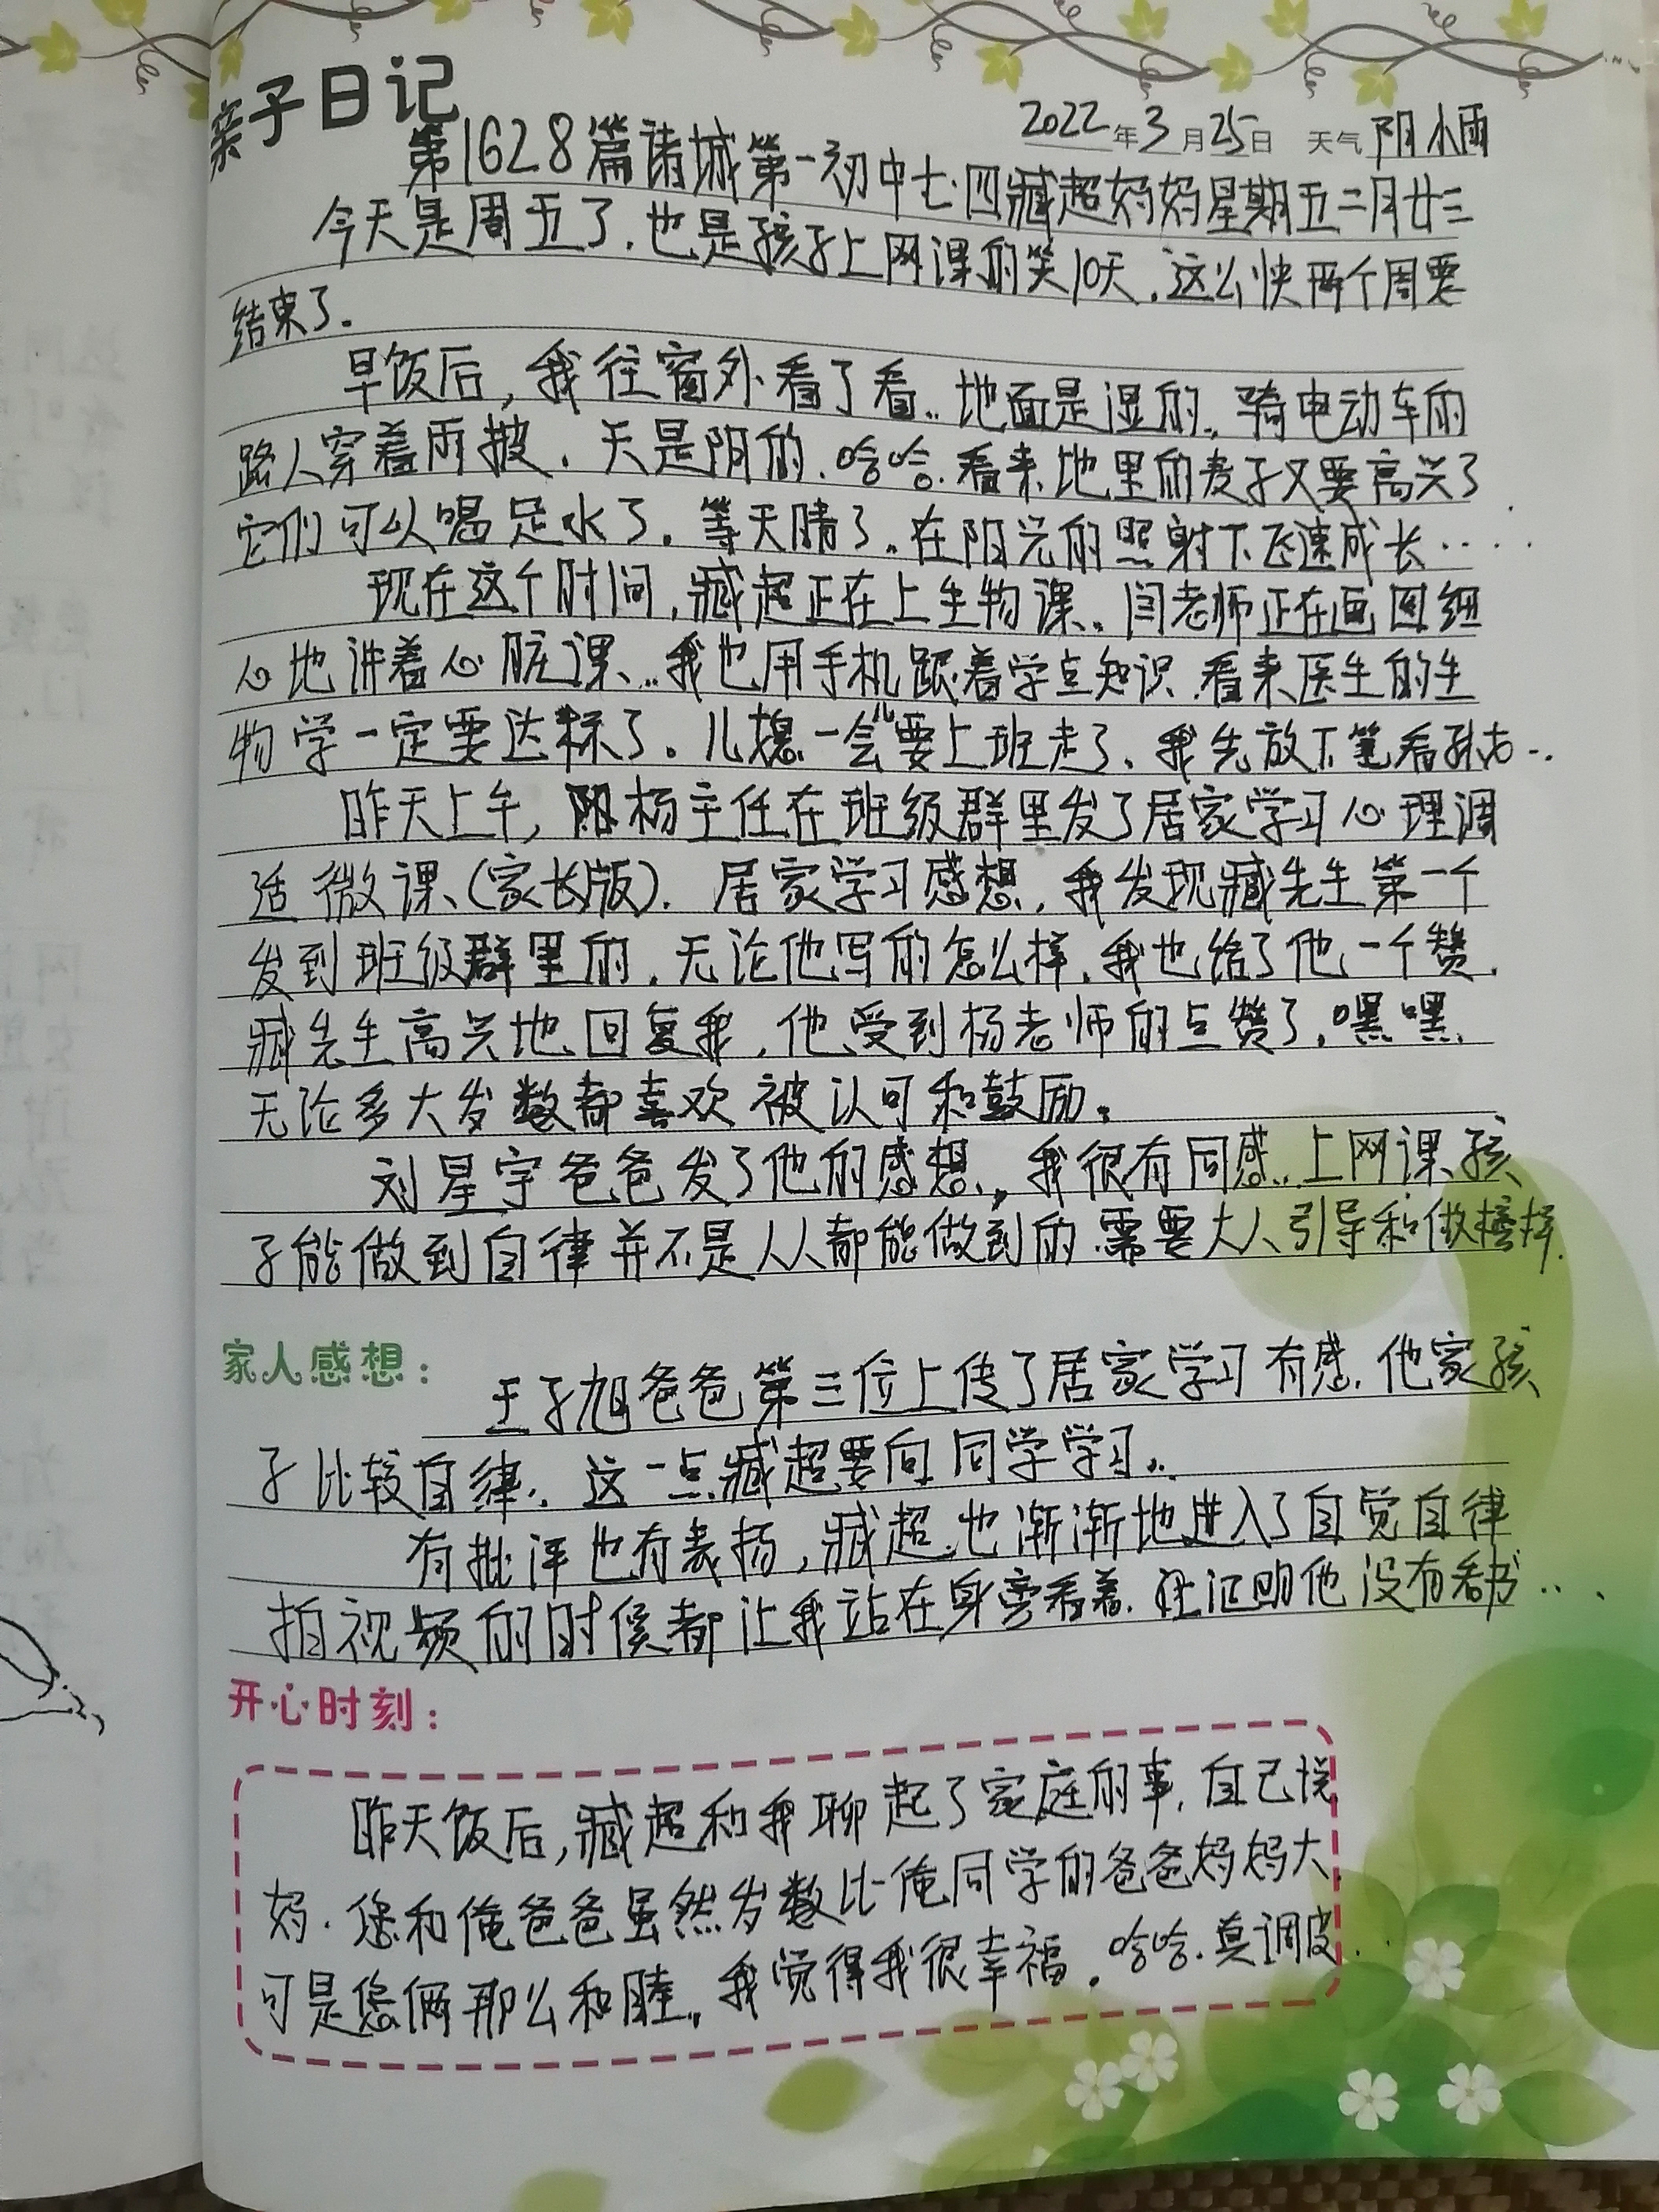 亲子日记
2022年3月25日 天气 阴小雨
第1628篇诸城第一初中七·四臧超妈妈星期五二月廿三
今天是周五了.也是孩子上网课的第10天.这么快两个周要
结束了.
早饭后,我往窗外看了看..地面是湿的,骑电动车的
路人穿着雨披.天是阴的.哈哈.看来地里的麦子又要高兴了
它们可以喝足水了.等天晴了.在阳光的照射下飞速成长……
现在这个时间,臧超正在上生物课.闫老师正在画图细
心地讲着心脏课...我也用手机跟着学点知识.看来医生的生
物学一定要达标了.儿媳一会儿要上班走了.我先放下笔看孙去…
昨天上午,杨主任在班级群里发了居家学习心理调
适微课(家长版).居家学习感想,我发现臧先生第一个
发到班级群里的.无论他写的怎么样.我也给了他一个赞.
臧先生高兴地回复我,他受到杨老师的点赞了.嘿嘿.
无论多大岁数都喜欢被认可和鼓励.
刘星宇爸爸发了他的感想,我很有同感..上网课孩
子能做到自律并不是人人都能做到的.需要大人引导和做榜样.
家人感想:
王子旭爸爸第三位上传了居家学习有感.他家孩
子比较自律.这一点臧超要向同学学习..
有批评也有表扬,臧超也渐渐地进入了自觉自律
拍视频的时候都让我站在身旁看着.证明他没有看书…
开心时刻:
昨天饭后,臧超和我聊起了家庭的事.自己说
妈.您和俺爸爸虽然岁数比俺同学的爸爸妈妈大.
可是您俩那么和睦,我觉得我很幸福.哈哈.真调皮…